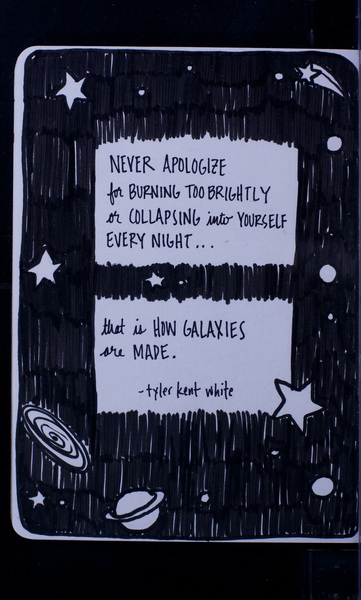 NEVER APOLOGIZE
for BURNING TOO BRIGHTLY
or COLLAPSING into YOURSELF
EVERY NIGHT...
that is HOW GALAXIES
are MADE.
-tyler kent white